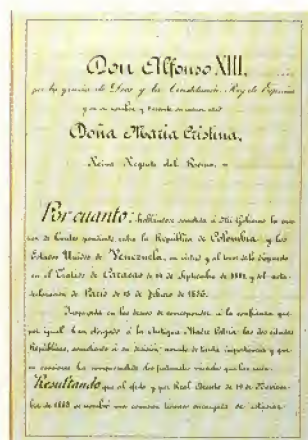 Don Alfonso XIII,
por la gracia de Dios y la Constitución, Rey de España
y en su nombre y durante su menor edad
Doña Maria Cristina,
Reina Regente del Reino,
Por cuanto: hallándose sometida á Mi Gobierno la cues-
tion de límites pendiente entre la República de Colombia y los
Estados Unidos de Venezuela, en virtud y al tenor de lo dispuesto
en el Tratado de Caracas de 14 de Septiembre de 1881 y del acta-
declaración de Paris de 15 de Febrero de 1886.
Inspirada en los deseos de corresponder á la confianza que
por igual han otorgado á la Antigua Madre Patria las dos citadas
Repúblicas, sometiendo á su decisión asunto de tanta importancia
Resultando que al efecto y por Real Decreto de 19 de Noviem-
bre de 1883 se nombró una comision técnica encargada de estudiar